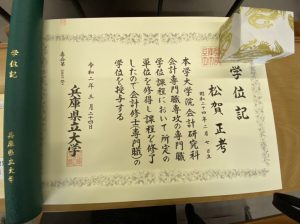 学位記
兵庫県立大学
学位記
松賀正考
昭和二十四年二月七日生
本学大学院会計研究科
会計専門職専攻の専門職
学位課程において所定の
単位を修得し課程を修了
したので会計修士(専門職)の
学位を授与する
令和二年三月二十四日
兵庫県立大学